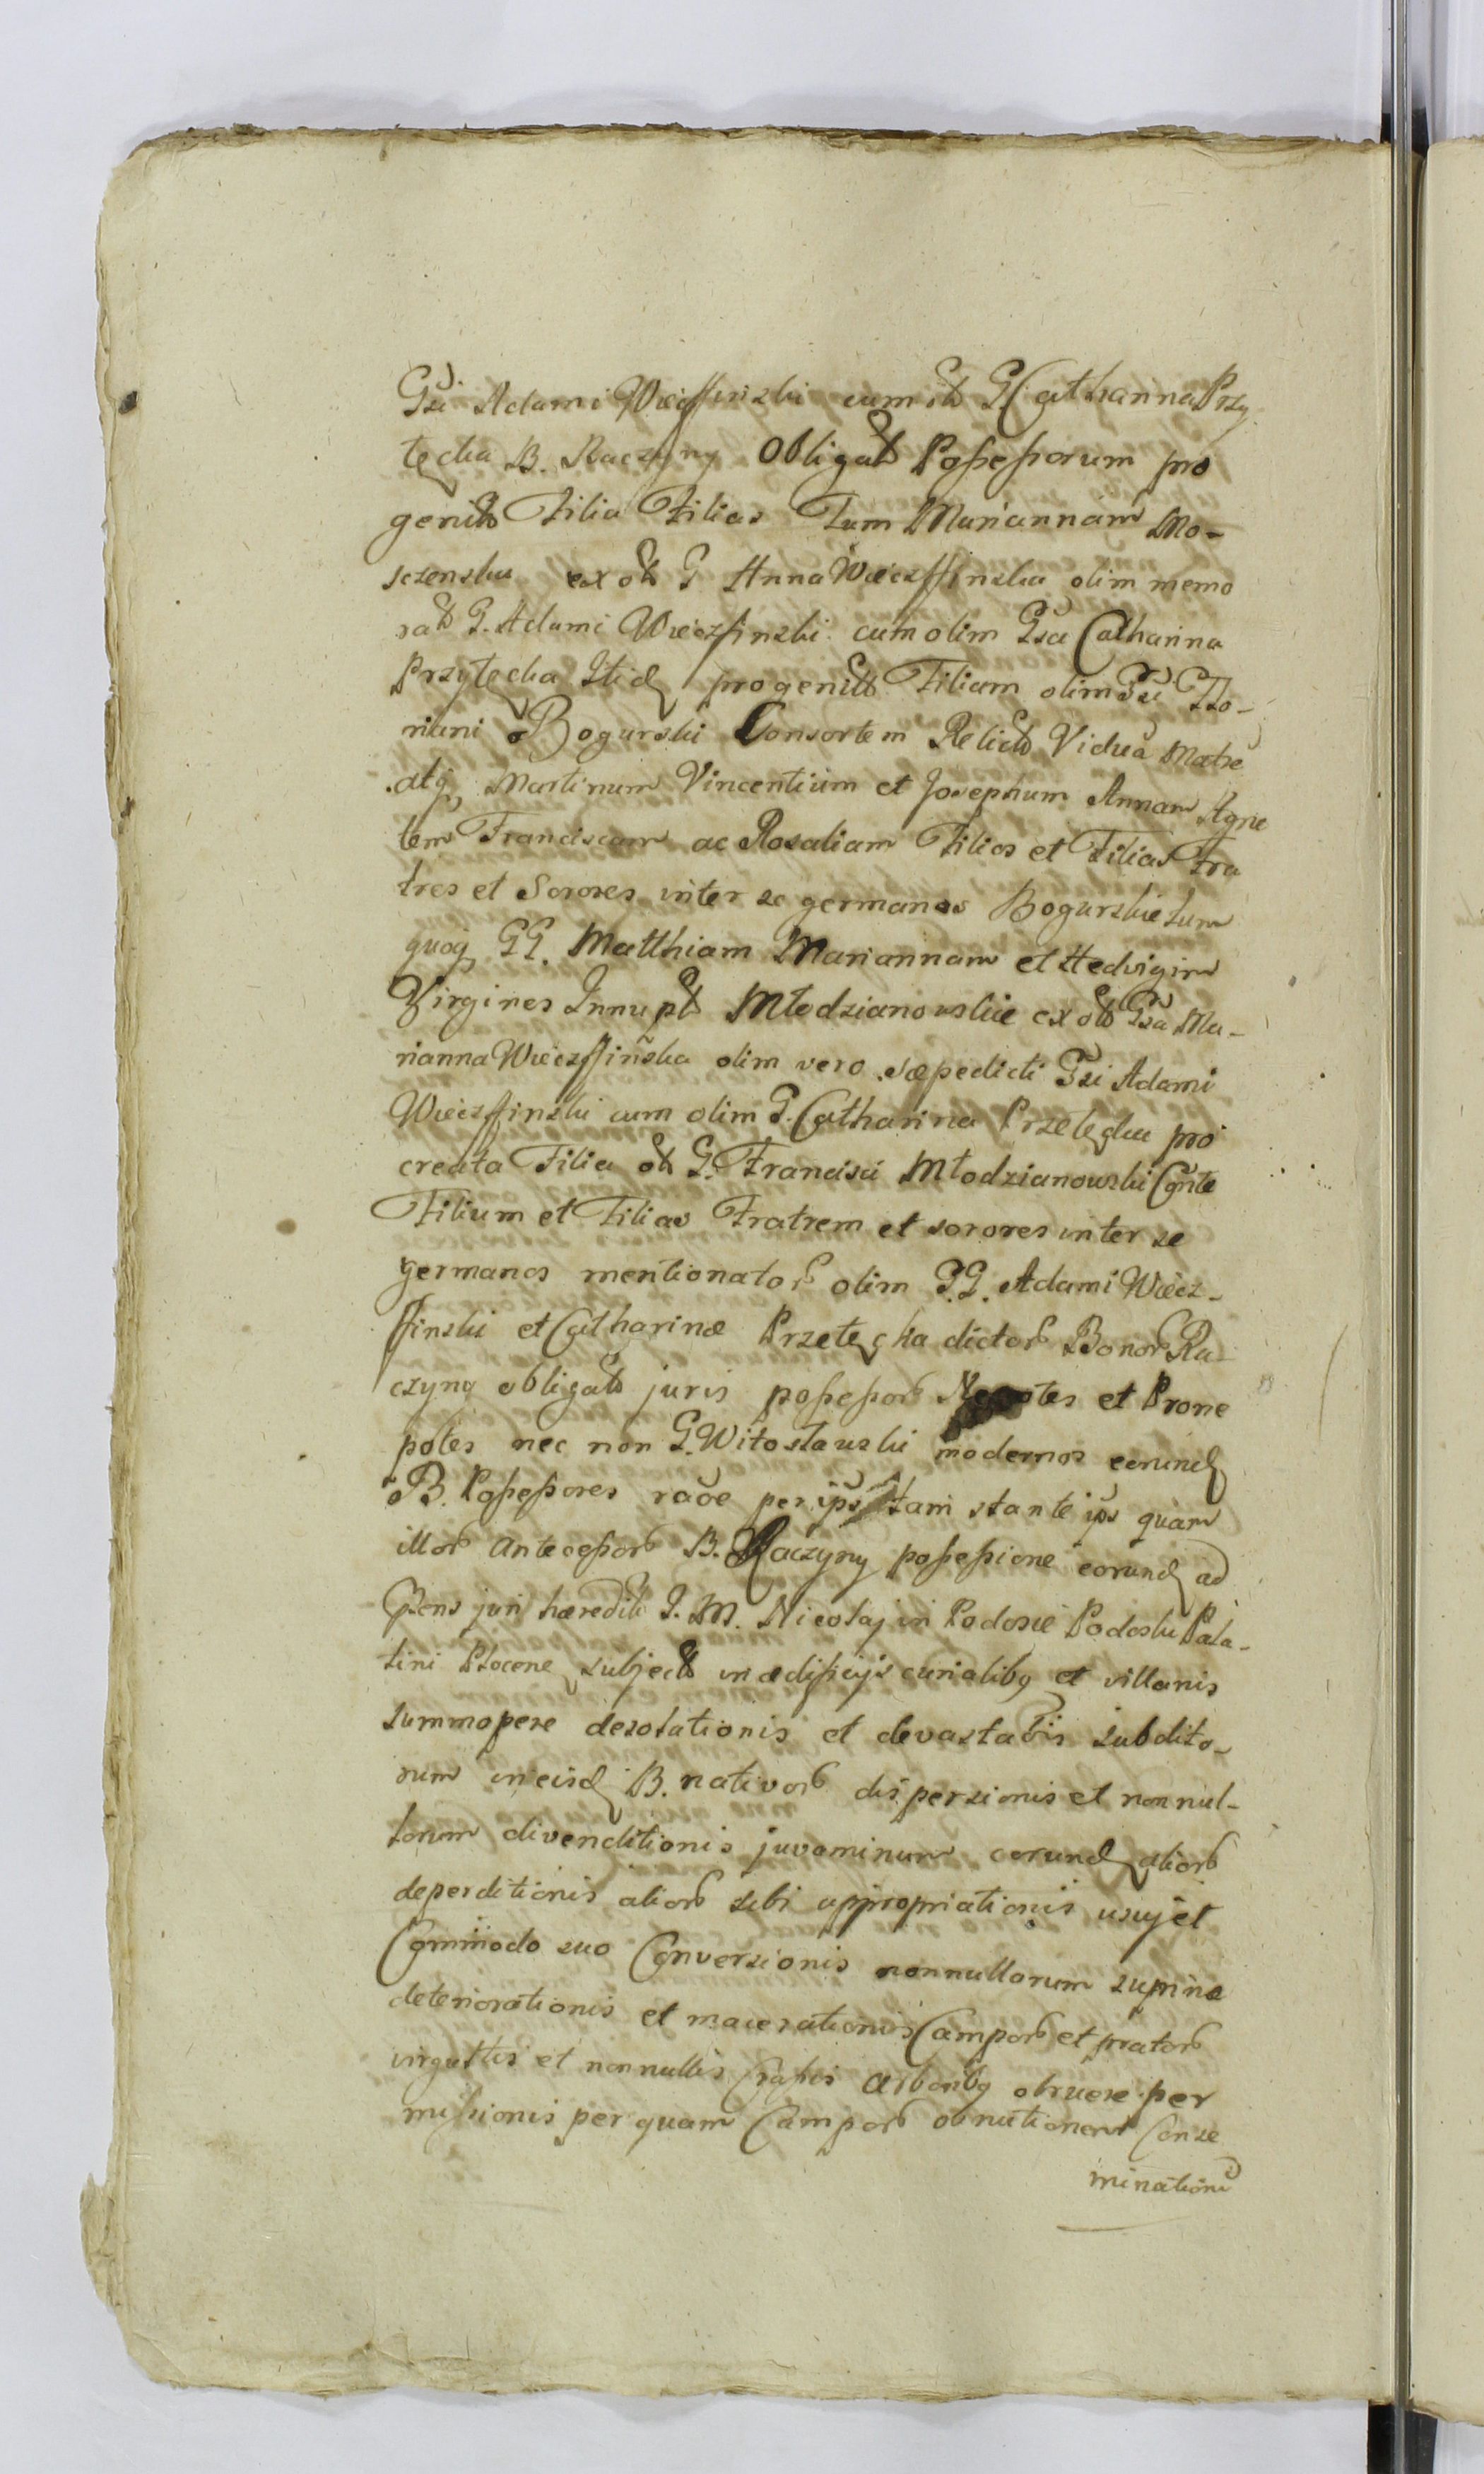 Gsi Adami Wieczffinski cum olt G Catharinna Przy
tecka B. Raczyny Obligat Possessorum pro
genito Filia Filias Tum Mariannam Mo-
sczenska ex olt G Anna Wieczffinska olim memo
rat G. Adami Wieczffinski cum olim Gsa Catharina
Przytecka Itid progenitt Filiam olim Gsi Flo-
riani Bogurski Consortem Relict Vidua Matre
atq Martinum Vincentium et Josephum Annam Agne
tem Franciscam ac Rosaliam Filios et Filias Fra
tres et Sorores inter se germanos Bogurskie tum
quoq GG. Matthiam Mariannam et Hedvigim
Virgines Innupt Młodzianowskie ex olt Gsa Ma-
rianna Wieczffińska olim vero sæpedicti Gsi Adami
Wieczffinski cum olim G. Catharina Przetecka pro
creata Filia olt G. Francisci Młodzianowski Conte
Filium et Filias Fratrem et sorores inter se
germanos mentionator olim G.G. Adami Wiecz-
ffinski et Catharinæ Przetecka dictor Bonor Ra-
czyny obligat juris possessor Nepotes et Prone
potes nec non G. Witosławski modernos eorund
B. Possessores raõe per ips tam stante ips quam
illor Antecessor B. Raczyny possessione eorund ad
Gsens juri hæredit I. M. Nicolaj in Podosie Podoski Pala-
tini Plocenq subject in ædificijs curialibq et villanis
summopere desolationis et devastaõis subdito-
rum in eisd B. nativor dispersionis et nonnul-
lorum divenditionis juvaminum eorund alior
deperditionis alior sibi appropriationis usuj et
Commodo suo Conversionis nonnullorum supina
deteriorationis et macerationis Campor et prator
virgultis et nonnullis Crassis Arboribq obruere per
missionis per quam Campor obrutionem Conse
minationi